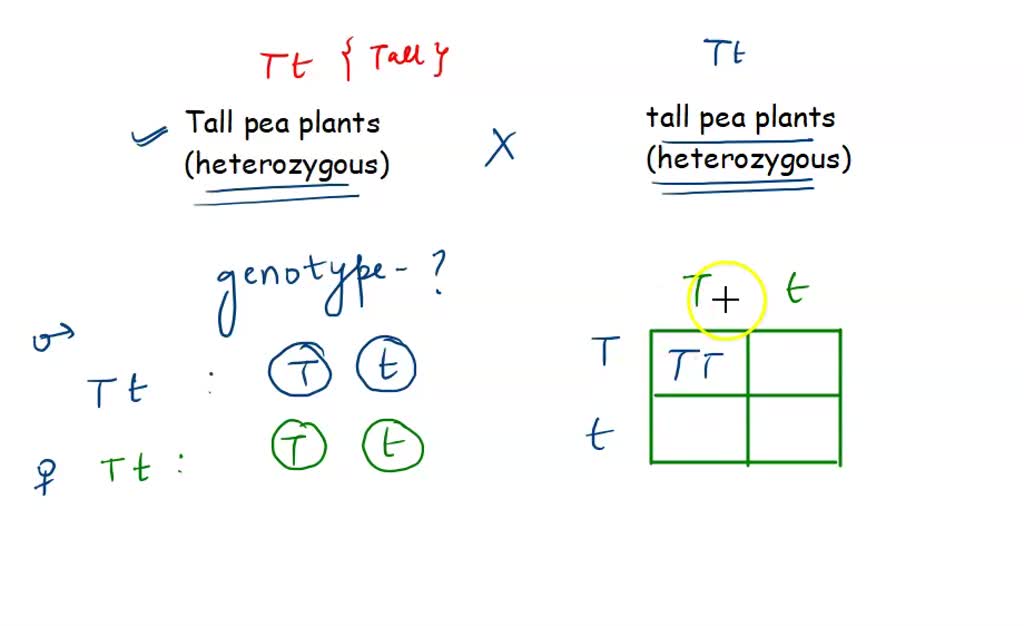 Tt { Tall }
Tt
Tall pea plants
(heterozygous)
X
tall pea plants
(heterozygous)
genotype - ?
T t
♂
Tt : T t
♀ Tt : T t
T TT
t